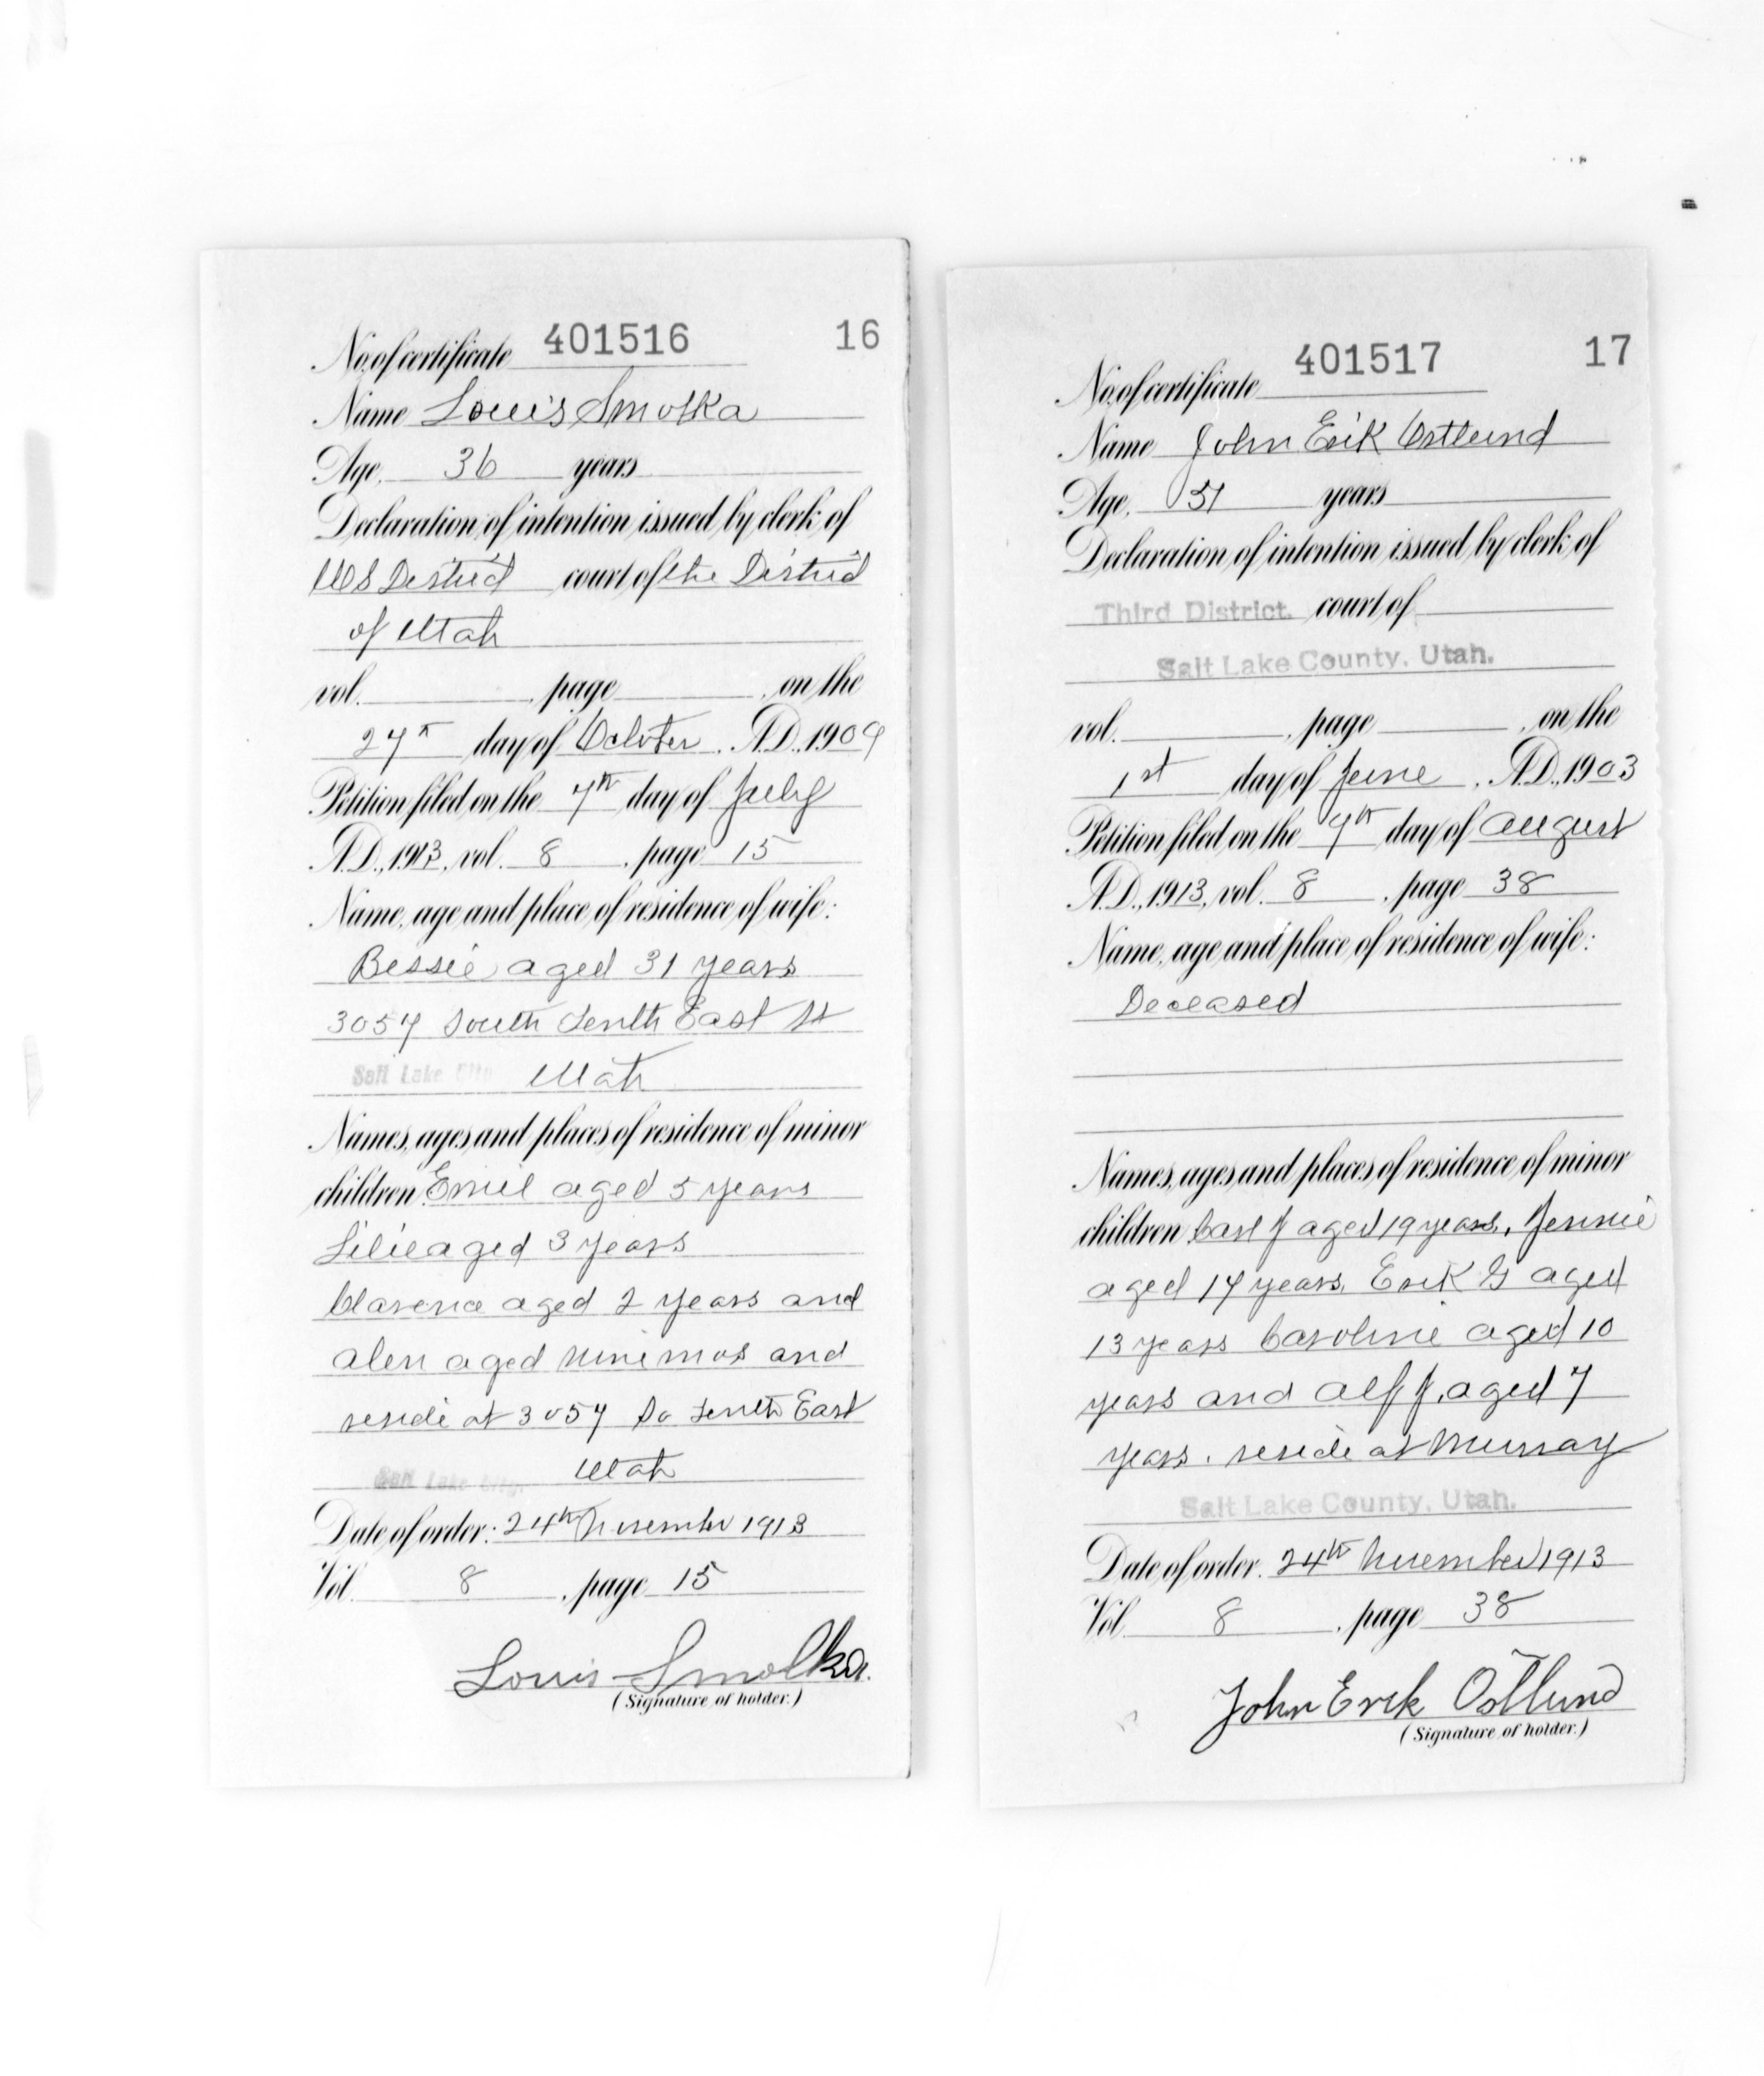 No. of certificate 401516 16
Name Louis Smolka
Age, 36 years
Declaration of intention issued by clerk of
US District court of the District
of Utah
vol. , page , on the
27th day of October, A.D., 1909
Petition filed on the 7th day of July
A.D., 1913, vol. 8, page 15
Name, age and place of residence of wife:
Bessie aged 31 years
3057 South Tenth East St
Salt Lake City Utah
Names, ages and places of residence of minor
children Emil aged 5 years
Lilie aged 3 years
Clarence aged 2 years and
alen aged nine mos and
reside at 3057 So Tenth East
Salt Lake City, Utah
Date of order: 24th November 1913
Vol. 8, page 15
Louis Smolka.
(Signature of holder.)
No. of certificate 401517 17
Name John Erik Ostlund
Age, 51 years
Declaration of intention issued by clerk of
Third District. court of
Salt Lake County, Utah.
vol. , page , on the
1st day of June, A.D., 1903
Petition filed on the 7th day of August
A.D., 1913, vol. 8, page 38
Name, age and place of residence of wife:
Deceased
Names, ages and places of residence of minor
children Carl J aged 19 years, Jennie
aged 17 years, Erik G aged
13 years Caroline aged 10
years and Alf J. aged 7
years. reside at Murray
Salt Lake County, Utah.
Date of order. 24th November 1913
Vol. 8, page 38
John Erik Ostlund
(Signature of holder.)